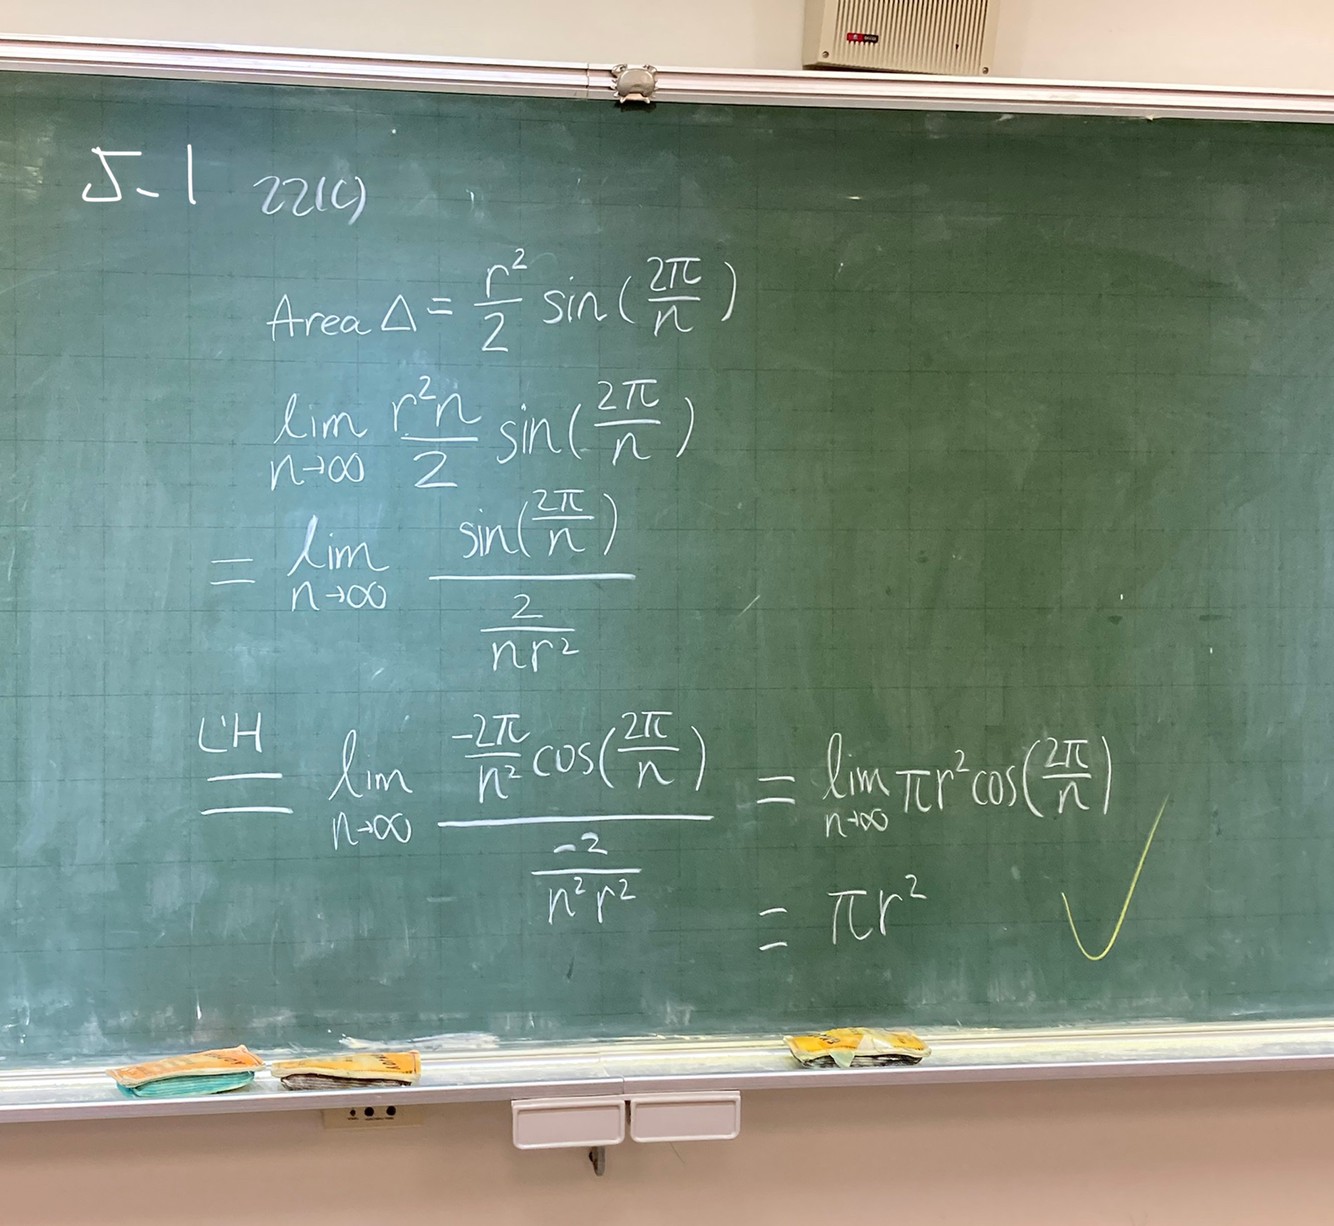 5-1 22(c)
Area △ = r²/2 sin(2π/n)
lim n→∞ r²n/2 sin(2π/n)
= lim n→∞ sin(2π/n) / (2/(nr²))
L'H = lim n→∞ (-2π/n² cos(2π/n)) / (-2/(n²r²)) = lim n→∞ πr² cos(2π/n)
= πr²